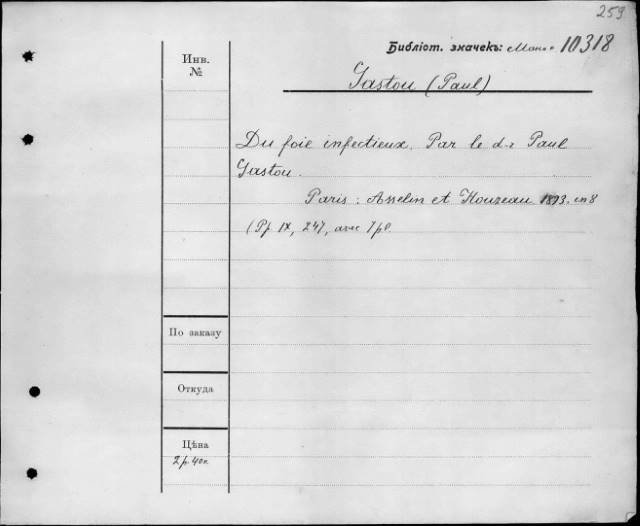 259
Библіот. значекъ: Моног. 10318
Инв.
№
Gastou (Paul)
Du foie infectieux. Par le d-r Paul
Gastou.
Paris: Asselin et Houzeau 1893. in 8
(Pp. IX, 247, avec 7 pl.
По заказу
Откуда
Цѣна
2 р. 40 к.